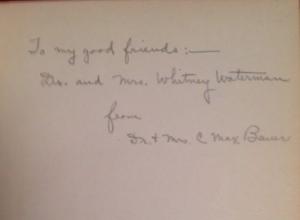 To my good friends:—
Drs. and Mrs. Whitney Waterman
from
Dr. & Mrs. C Max Bauer